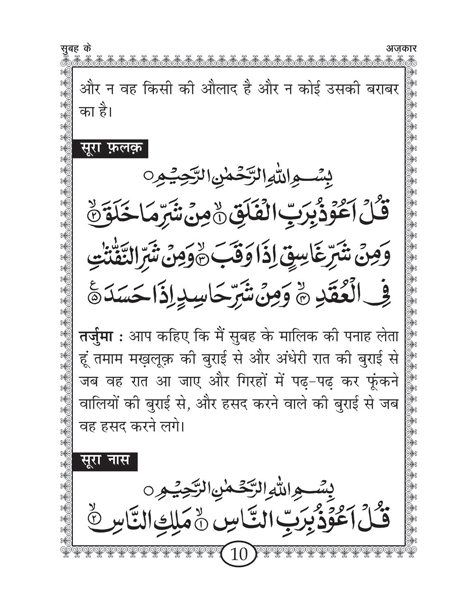 सुबह के
अज़कार
और न वह किसी की औलाद है और न कोई उसकी बराबर
का है।
सूरा फ़लक़
بِسْمِ اللهِ الرَّحْمٰنِ الرَّحِيْمِ ○
قُلْ اَعُوْذُ بِرَبِّ الْفَلَقِ ۙ﴿۱﴾ مِنْ شَرِّ مَا خَلَقَ ۙ﴿۲﴾
وَمِنْ شَرِّ غَاسِقٍ اِذَا وَقَبَ ۙ﴿۳﴾ وَمِنْ شَرِّ النَّفّٰثٰتِ
فِى الْعُقَدِ ۙ﴿۴﴾ وَمِنْ شَرِّ حَاسِدٍ اِذَا حَسَدَ ﴿۵﴾
तर्जुमा : आप कहिए कि मैं सुबह के मालिक की पनाह लेता
हूं तमाम मख़लूक़ की बुराई से और अंधेरी रात की बुराई से
जब वह रात आ जाए और गिरहों में पढ़-पढ़ कर फूंकने
वालियों की बुराई से, और हसद करने वाले की बुराई से जब
वह हसद करने लगे।
सूरा नास
بِسْمِ اللهِ الرَّحْمٰنِ الرَّحِيْمِ ○
قُلْ اَعُوْذُ بِرَبِّ النَّاسِ ۙ﴿۱﴾ مَلِكِ النَّاسِ ۙ﴿۲﴾
10